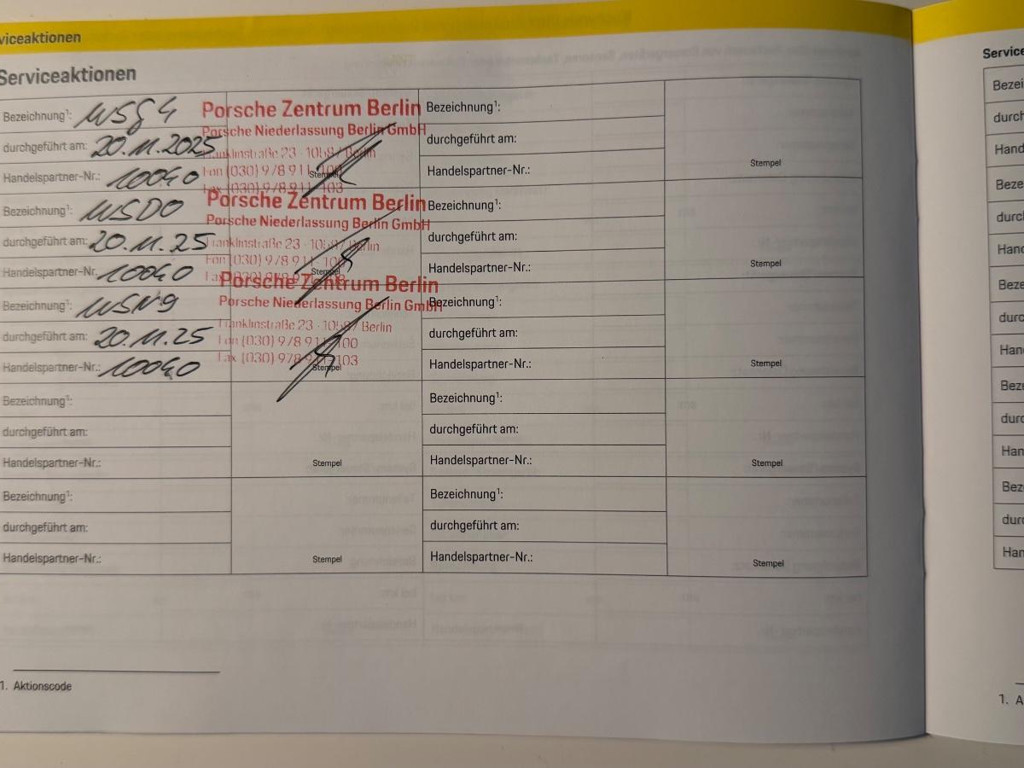 viceaktionen
Serviceaktionen
Bezeichnung¹: WSG4
durchgeführt am: 20.11.2025
Handelspartner-Nr.: 10040
Porsche Zentrum Berlin
Porsche Niederlassung Berlin GmbH
Franklinstraße 23 · 10587 Berlin
Fon (030) 978 911 100
Fax (030) 978 911 103
Stempel
Bezeichnung¹: WSD0
durchgeführt am: 20.11.25
Handelspartner-Nr. 10040
Porsche Zentrum Berlin
Porsche Niederlassung Berlin GmbH
Franklinstraße 23 · 10587 Berlin
Fon (030) 978 911
Stempel
Bezeichnung¹: WSN9
durchgeführt am: 20.11.25
Handelspartner-Nr.: 10040
Porsche Zentrum Berlin
Porsche Niederlassung Berlin GmbH
Franklinstraße 23 · 10587 Berlin
Fon (030) 978 911 100
Fax (030) 978 911 103
Stempel
Bezeichnung¹:
durchgeführt am:
Handelspartner-Nr.:
Stempel
Bezeichnung¹:
durchgeführt am:
Handelspartner-Nr.:
Stempel
Bezeichnung¹:
durchgeführt am:
Handelspartner-Nr.:
Stempel
Bezeichnung¹:
durchgeführt am:
Handelspartner-Nr.:
Stempel
Bezeichnung¹:
durchgeführt am:
Handelspartner-Nr.:
Stempel
Bezeichnung¹:
durchgeführt am:
Handelspartner-Nr.:
Stempel
Bezeichnung¹:
durchgeführt am:
Handelspartner-Nr.:
Stempel
1. Aktionscode
Service
Bezei
durch
Hand
Beze
durc
Hand
Beze
durc
Han
Bez
durc
Han
Bez
durc
Han
1. A